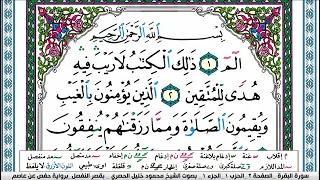 بِسْمِ ٱللَّهِ ٱلرَّحْمَٰنِ ٱلرَّحِيمِ
الٓمٓ ١ ذَٰلِكَ ٱلْكِتَٰبُ لَا رَيْبَ فِيهِ
هُدًى لِّلْمُتَّقِينَ ٢ ٱلَّذِينَ يُؤْمِنُونَ بِٱلْغَيْبِ
وَيُقِيمُونَ ٱلصَّلَوٰةَ وَمِمَّا رَزَقْنَٰهُمْ يُنفِقُونَ
سورة البقرة الصفحة 2 الحزب 1 الجزء 1 بصوت الشيخ محمود خليل الحصري بقصر المنفصل برواية حفص عن عاصم